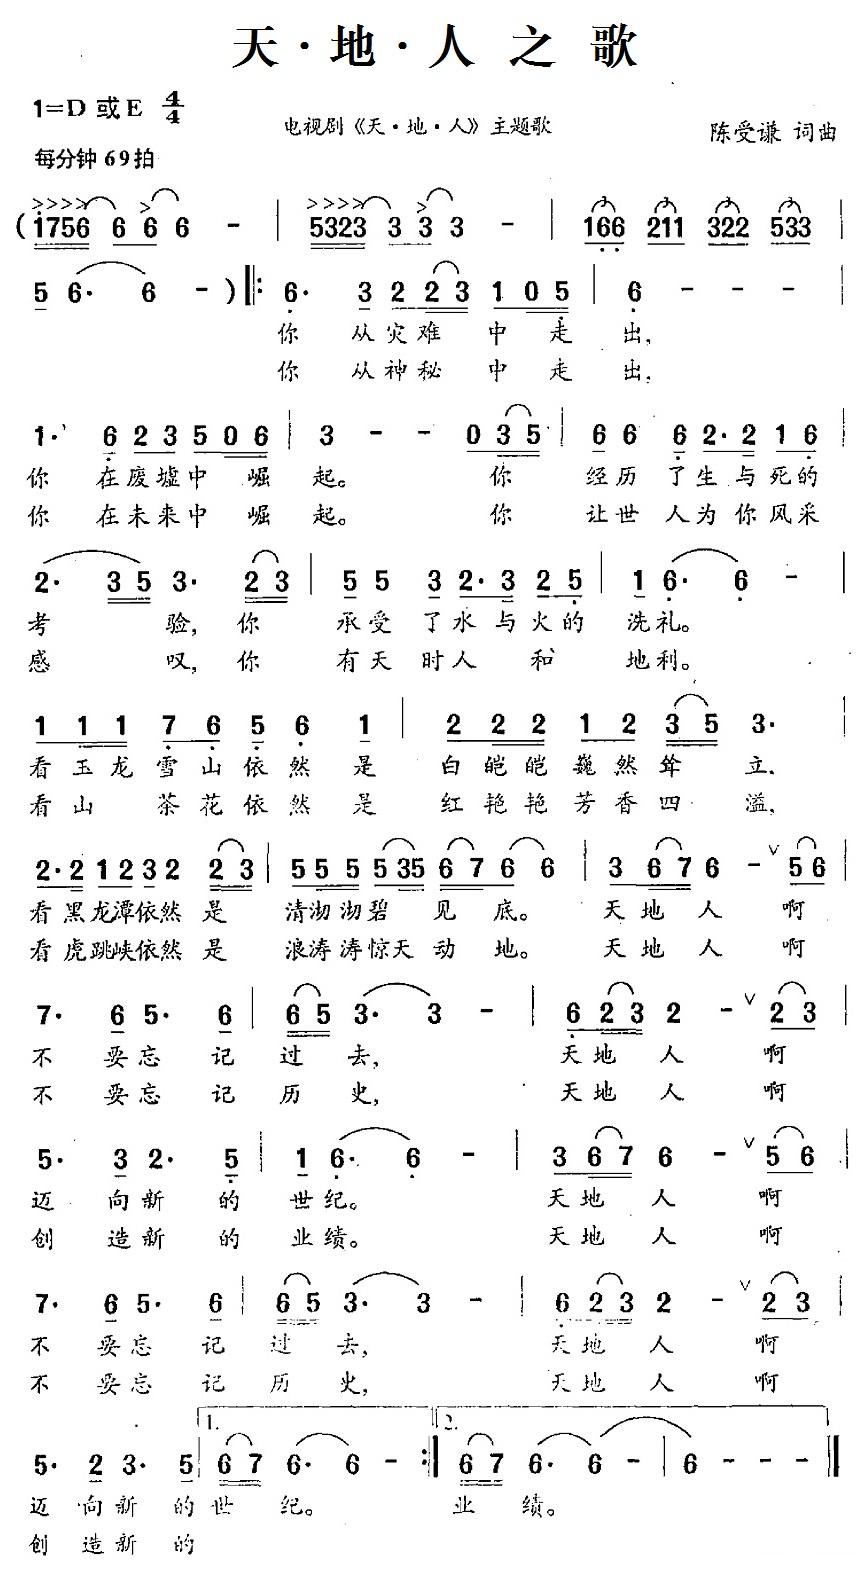 天·地·人之歌
1=D 或 E 4/4
电视剧《天·地·人》主题歌
陈受谦 词曲
每分钟 69 拍
(1756 6 6 6 - | 5323 3 3 3 - | 166 211 322 533
5 6· 6 - )‖: 6· 3 2 2 3 1 0 5 | 6 - - -
你 从灾难 中 走 出,
你 从神秘 中 走 出,
1· 6 2 3 5 0 6 | 3 - - 0 3 5 | 6 6 6 2· 2 1 6
你 在废墟中 崛 起。 你 经历 了生与死的
你 在未来中 崛 起。 你 让世 人为你风采
2· 3 5 3· 2 3 | 5 5 3 2· 3 2 5 | 1 6· 6 -
考 验, 你 承受 了水与火的 洗礼。
感 叹, 你 有天 时人 和 地利。
1 1 1 7 6 5 6 1 | 2 2 2 1 2 3 5 3·
看玉龙雪山依然是 白皑皑巍然耸 立.
看山 茶花依然是 红艳艳芳香四 溢,
2· 2 1 2 3 2 2 3 | 5 5 5 5 5 3 5 6 7 6 6 | 3 6 7 6 - ∨ 5 6
看黑龙潭依然是 清泐泐碧 见 底。 天地人 啊
看虎跳峡依然是 浪涛涛惊天动 地。 天地人 啊
7· 6 5· 6 | 6 5 3· 3 - | 6 2 3 2 - ∨ 2 3
不 要忘 记 过 去, 天地 人 啊
不 要忘 记 历 史, 天地 人 啊
5· 3 2· 5 | 1 6· 6 - | 3 6 7 6 - ∨ 5 6
迈 向新 的 世纪。 天地 人 啊
创 造新 的 业绩。 天地 人 啊
7· 6 5· 6 | 6 5 3· 3 - | 6 2 3 2 - ∨ 2 3
不 要忘 记 过 去, 天地 人 啊
不 要忘 记 历 史, 天地 人 啊
5· 2 3· 5 | 1. 6 7 6· 6 - :‖ 2. 6 7 6· 6 - | 6 - - - ‖
迈 向新 的世 纪。 业 绩。
创 造新 的